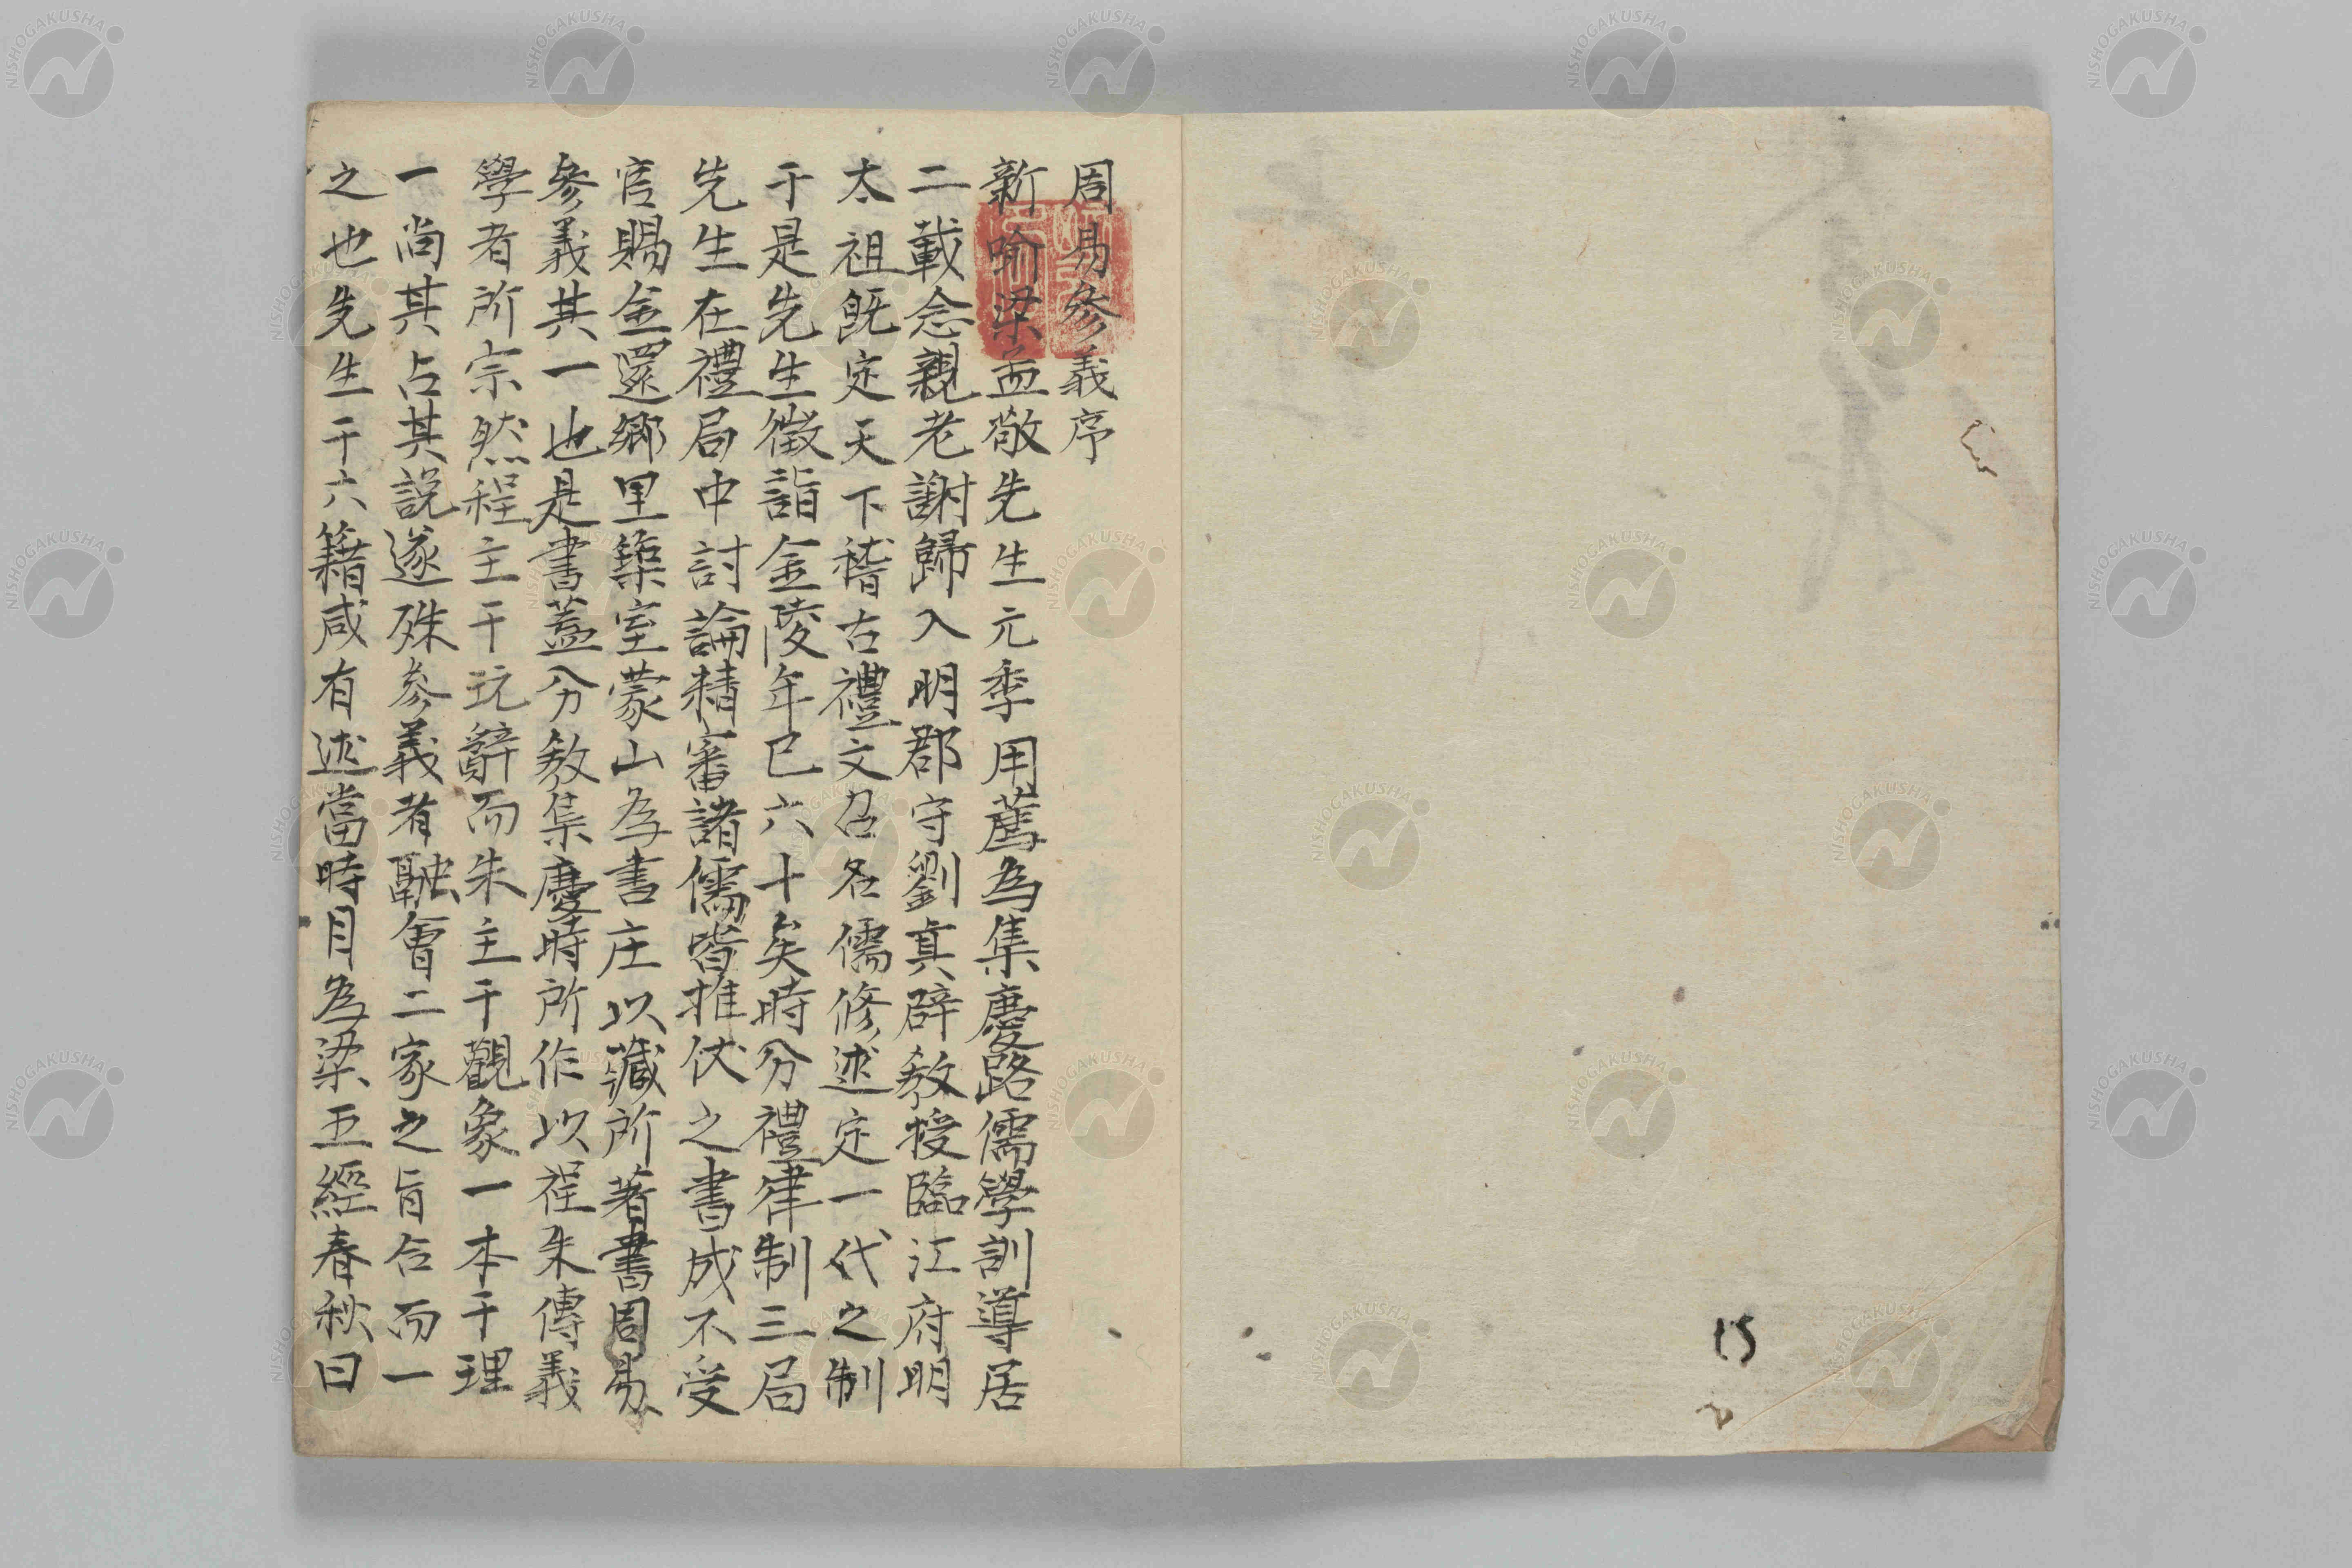 周易參義序
新喻梁孟敬先生元季用薦為集慶路儒學訓導居
二載念親老謝歸入明郡守劉真辟教授臨江府明
太祖既定天下稽古禮文召名儒修述定一代之制
于是先生徵詣金陵年已六十矣時分禮律制三局
先生在禮局中討論精審諸儒皆推伏之書成不受
官賜金還鄉里築室蒙山為書庄以藏所著書周易
參義其一也是書蓋分教集慶時所作以程朱傳義
學者所宗然程主于玩辭而朱主于觀象一本于理
一尚其占其說遂殊參義者融會二家之旨合而一
之也先生于六籍咸有述當時目為梁五經春秋曰
15
NISHOGAKUSHA